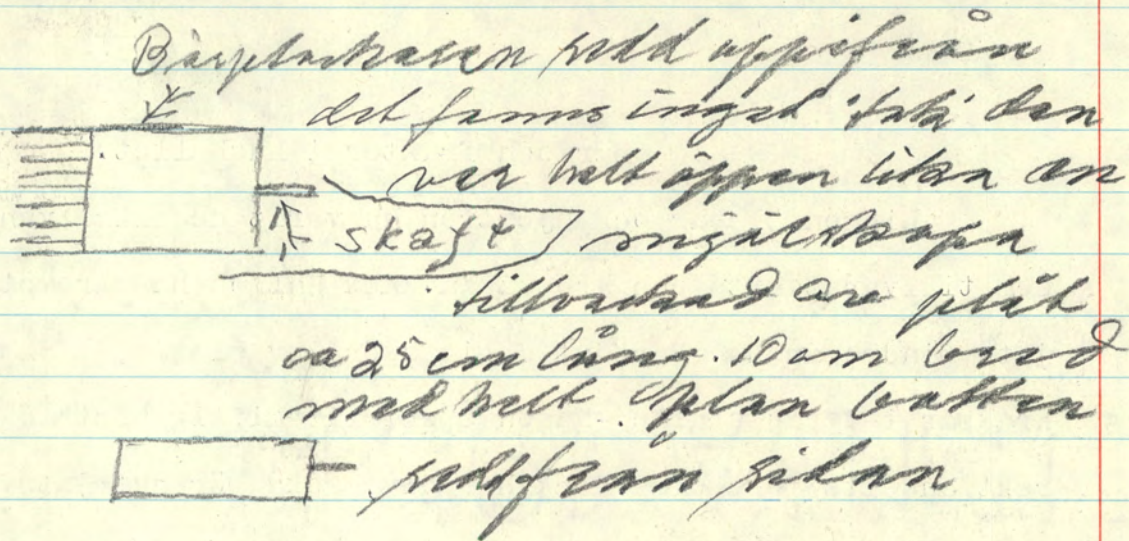 Bärplockaren sedd uppifrån
det fanns inget "tak" den
var helt öppen lika en
skaft mjölskopa
tillverkad av plåt
ca 25 cm lång. 10 cm bred
med helt plan botten
sedd från sidan